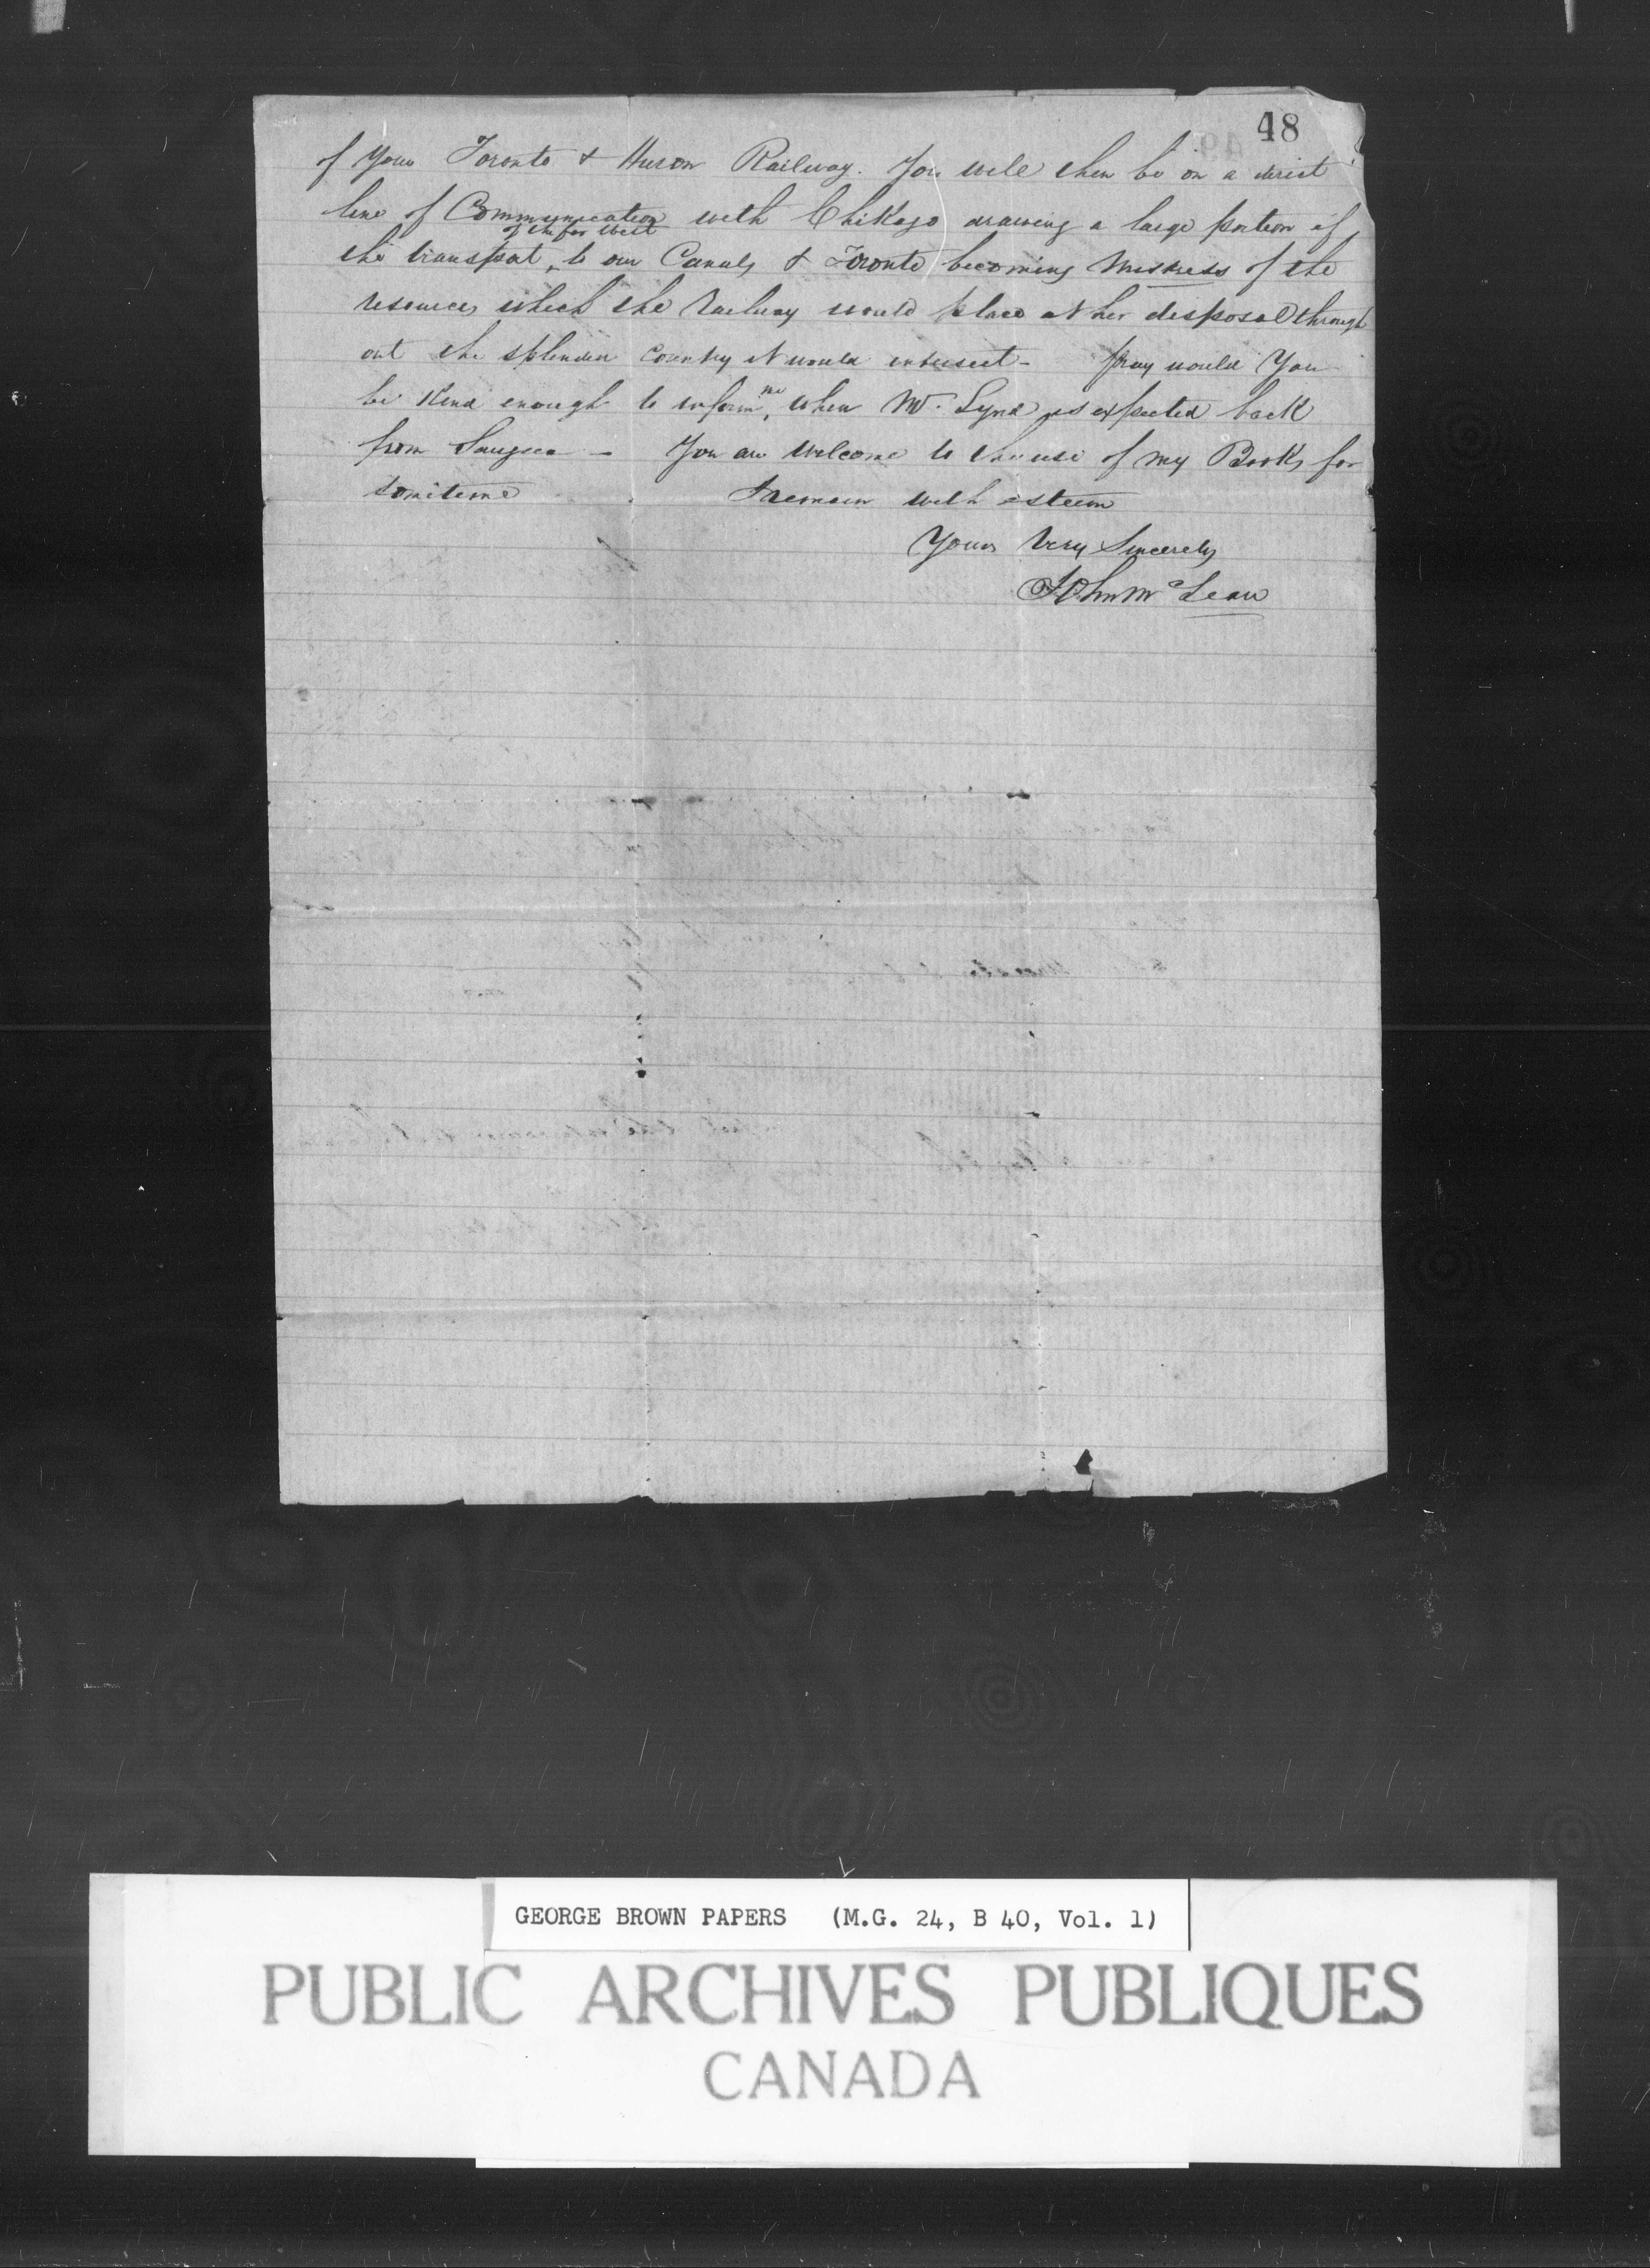 48
of Your Toronto & Huron Railway. You will then be on a direct
line of Communication with Chikago drawing a large portion of
of the far West
the transport, to our Canals & Toronto becoming Mistress of the
resources which the Railway would place at her disposal through
out the splendid Country it would intersect - Pray would You
be Kind enough to inform me, when Mr. Lynd is expected back
from Saugeen - You are Welcome to the use of my Books for
sometime I remain with esteem
Yours Very Sincerely
John McLean
GEORGE BROWN PAPERS (M.G. 24, B 40, Vol. 1)
PUBLIC ARCHIVES PUBLIQUES
CANADA